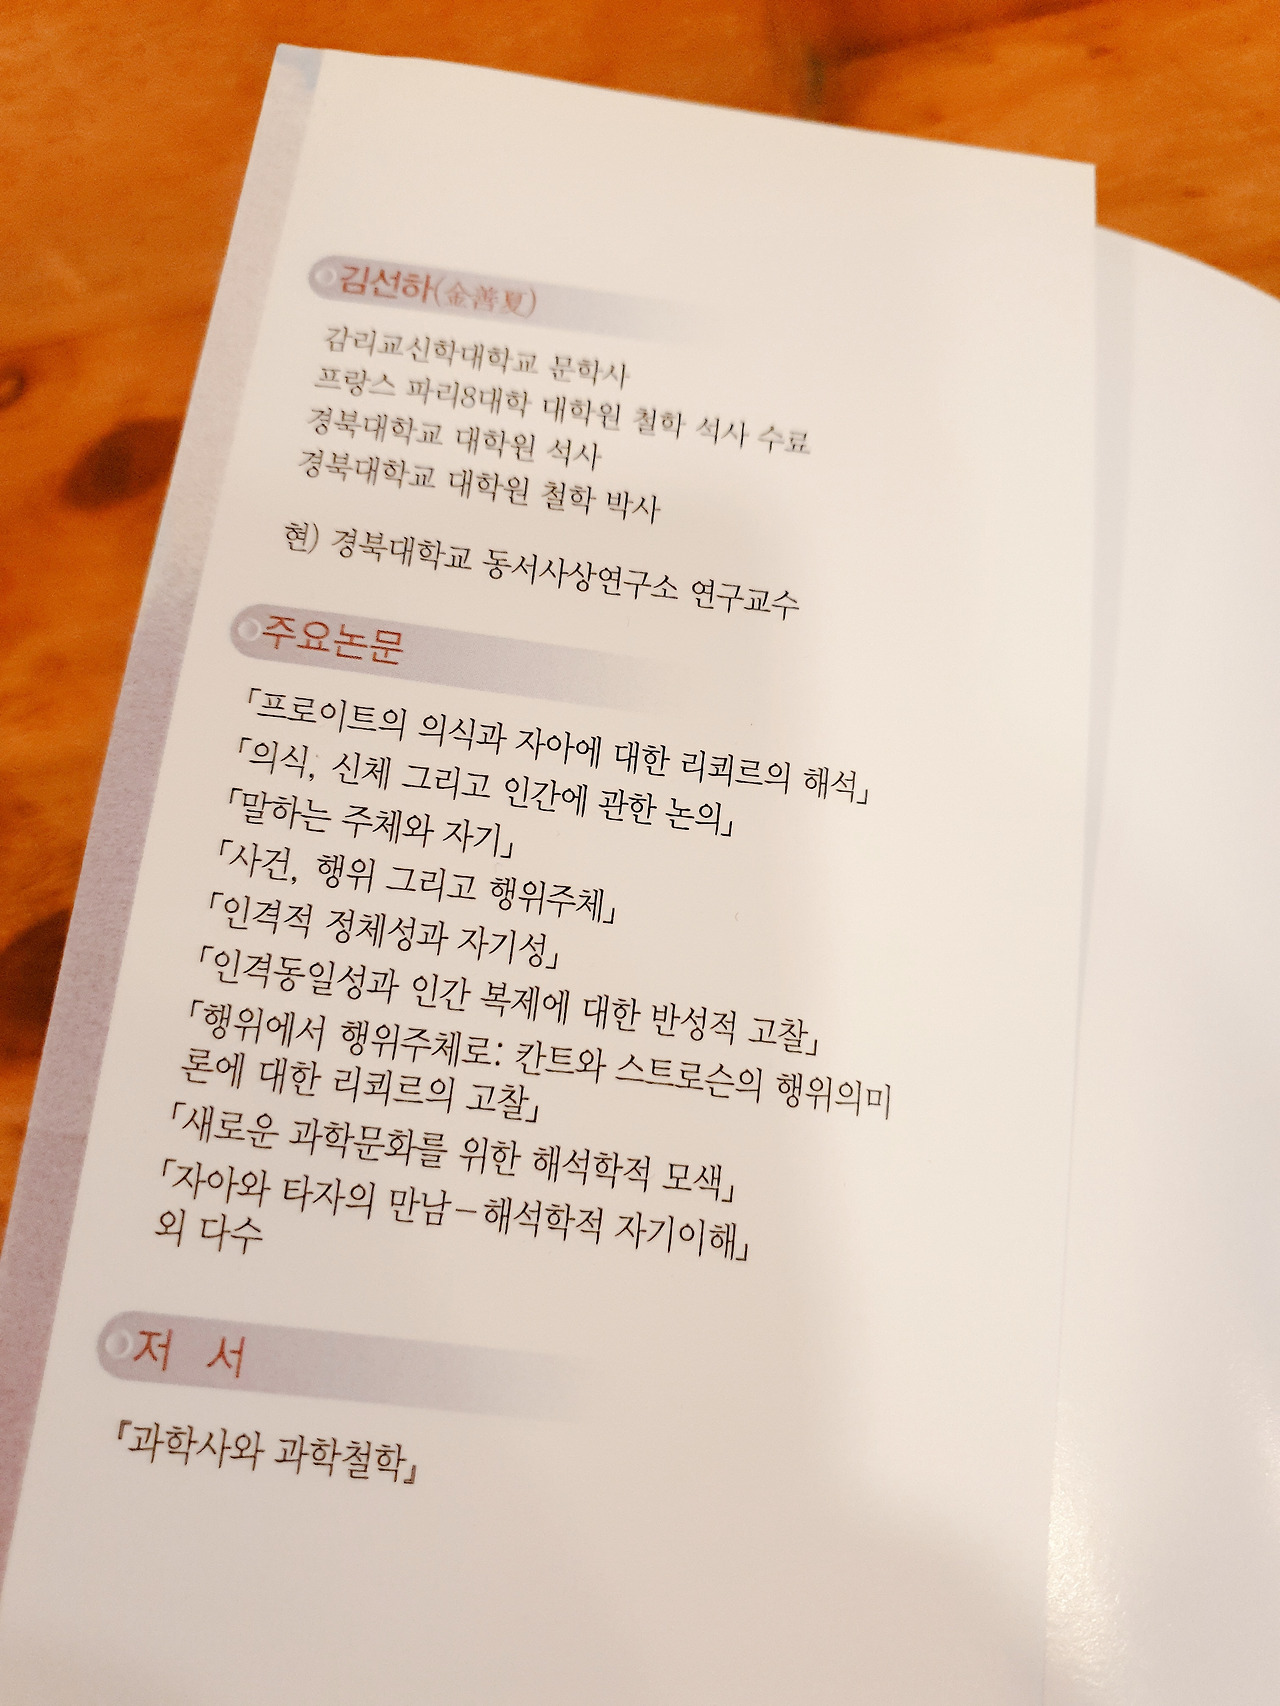 김선하(金善夏)
감리교신학대학교 문학사
프랑스 파리8대학 대학원 철학 석사 수료
경북대학교 대학원 석사
경북대학교 대학원 철학 박사
현) 경북대학교 동서사상연구소 연구교수
주요논문
「프로이트의 의식과 자아에 대한 리쾨르의 해석」
「의식, 신체 그리고 인간에 관한 논의」
「말하는 주체와 자기」
「사건, 행위 그리고 행위주체」
「인격적 정체성과 자기성」
「인격동일성과 인간 복제에 대한 반성적 고찰」
「행위에서 행위주체로: 칸트와 스트로슨의 행위의미
론에 대한 리쾨르의 고찰」
「새로운 과학문화를 위한 해석학적 모색」
「자아와 타자의 만남-해석학적 자기이해」
외 다수
저 서
『과학사와 과학철학』